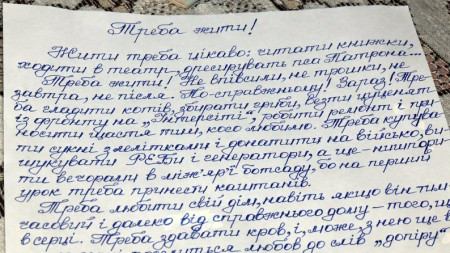 Треба жити!
Жити треба цікаво: читати книжки,
ходити в театр, дресирувать пса Патрона...
Треба жити! Не впівсили, не трошки, не
завтра, не після. По-справжньому! Зараз! Тре-
ба гладити котів, збирати гриби, везти цуценят
із фронту на „Інтерсіті", робити ремонт і при-
носити щастя тим, кого любимо. Треба купува-
ти сукні з лелітками і донатити на військо, ви-
шукувати РЕБи і генератори, а ще – нишпори-
ти вечорами в між'яр'ї ботсаду, бо на перший
урок треба принести каштанів.
Треба любити свій дім, навіть якщо він тим-
часовий і далеко від справжнього дому – того, що
в серці. Треба здавати кров, і, може, з нею ще в
любов до слів „допіру"